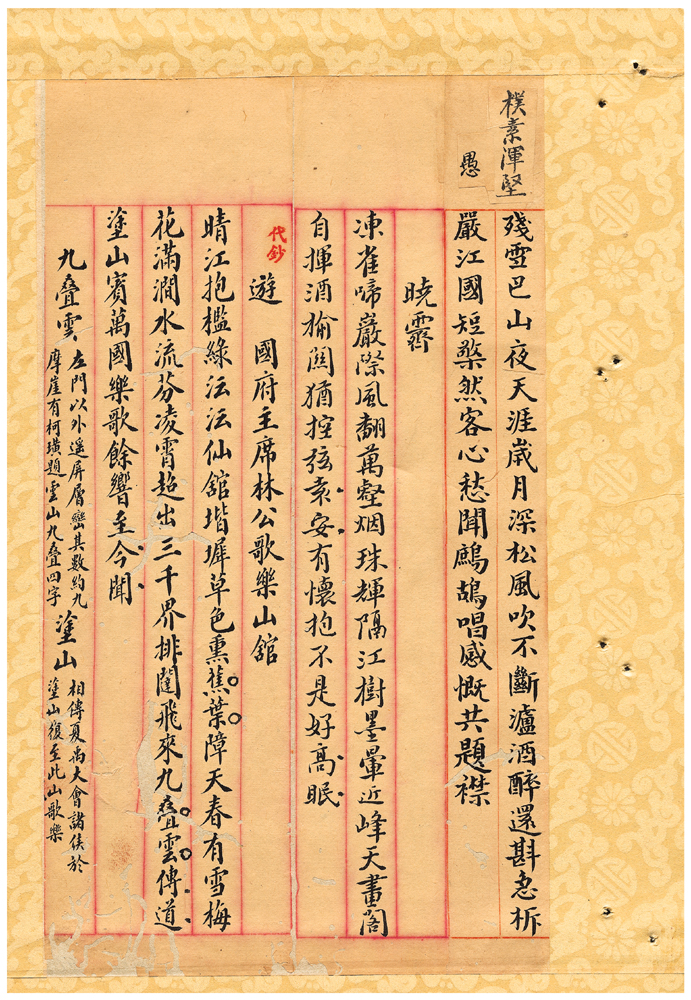 樸素渾堅
愚
殘雪巴山夜天涯歲月深松風吹不斷瀘酒醉還斟急柝
嚴江國短檠然客心愁聞鷓鴣唱感慨共題襟
曉霽
凍雀啼巖際風翻萬壑烟珠輝隔江樹墨暈近峰天畫閣
自揮酒榆關猶控弦袁安有懷抱不是好高眠
代鈔
遊 國府主席林公歌樂山舘
晴江抱檻綠沄沄仙舘堦墀草色熏蕉葉障天春有雪梅
花滿澗水流芬凌霄超出三千界排闥飛來九疊雲傳道
塗山賓萬國樂歌餘響至今聞
九疊雲 左門以外遥屏層巒其數約九
摩崖有柯璜題雲山九疊四字
塗山 相傳夏禹大會諸侯於
塗山復至此山歌樂